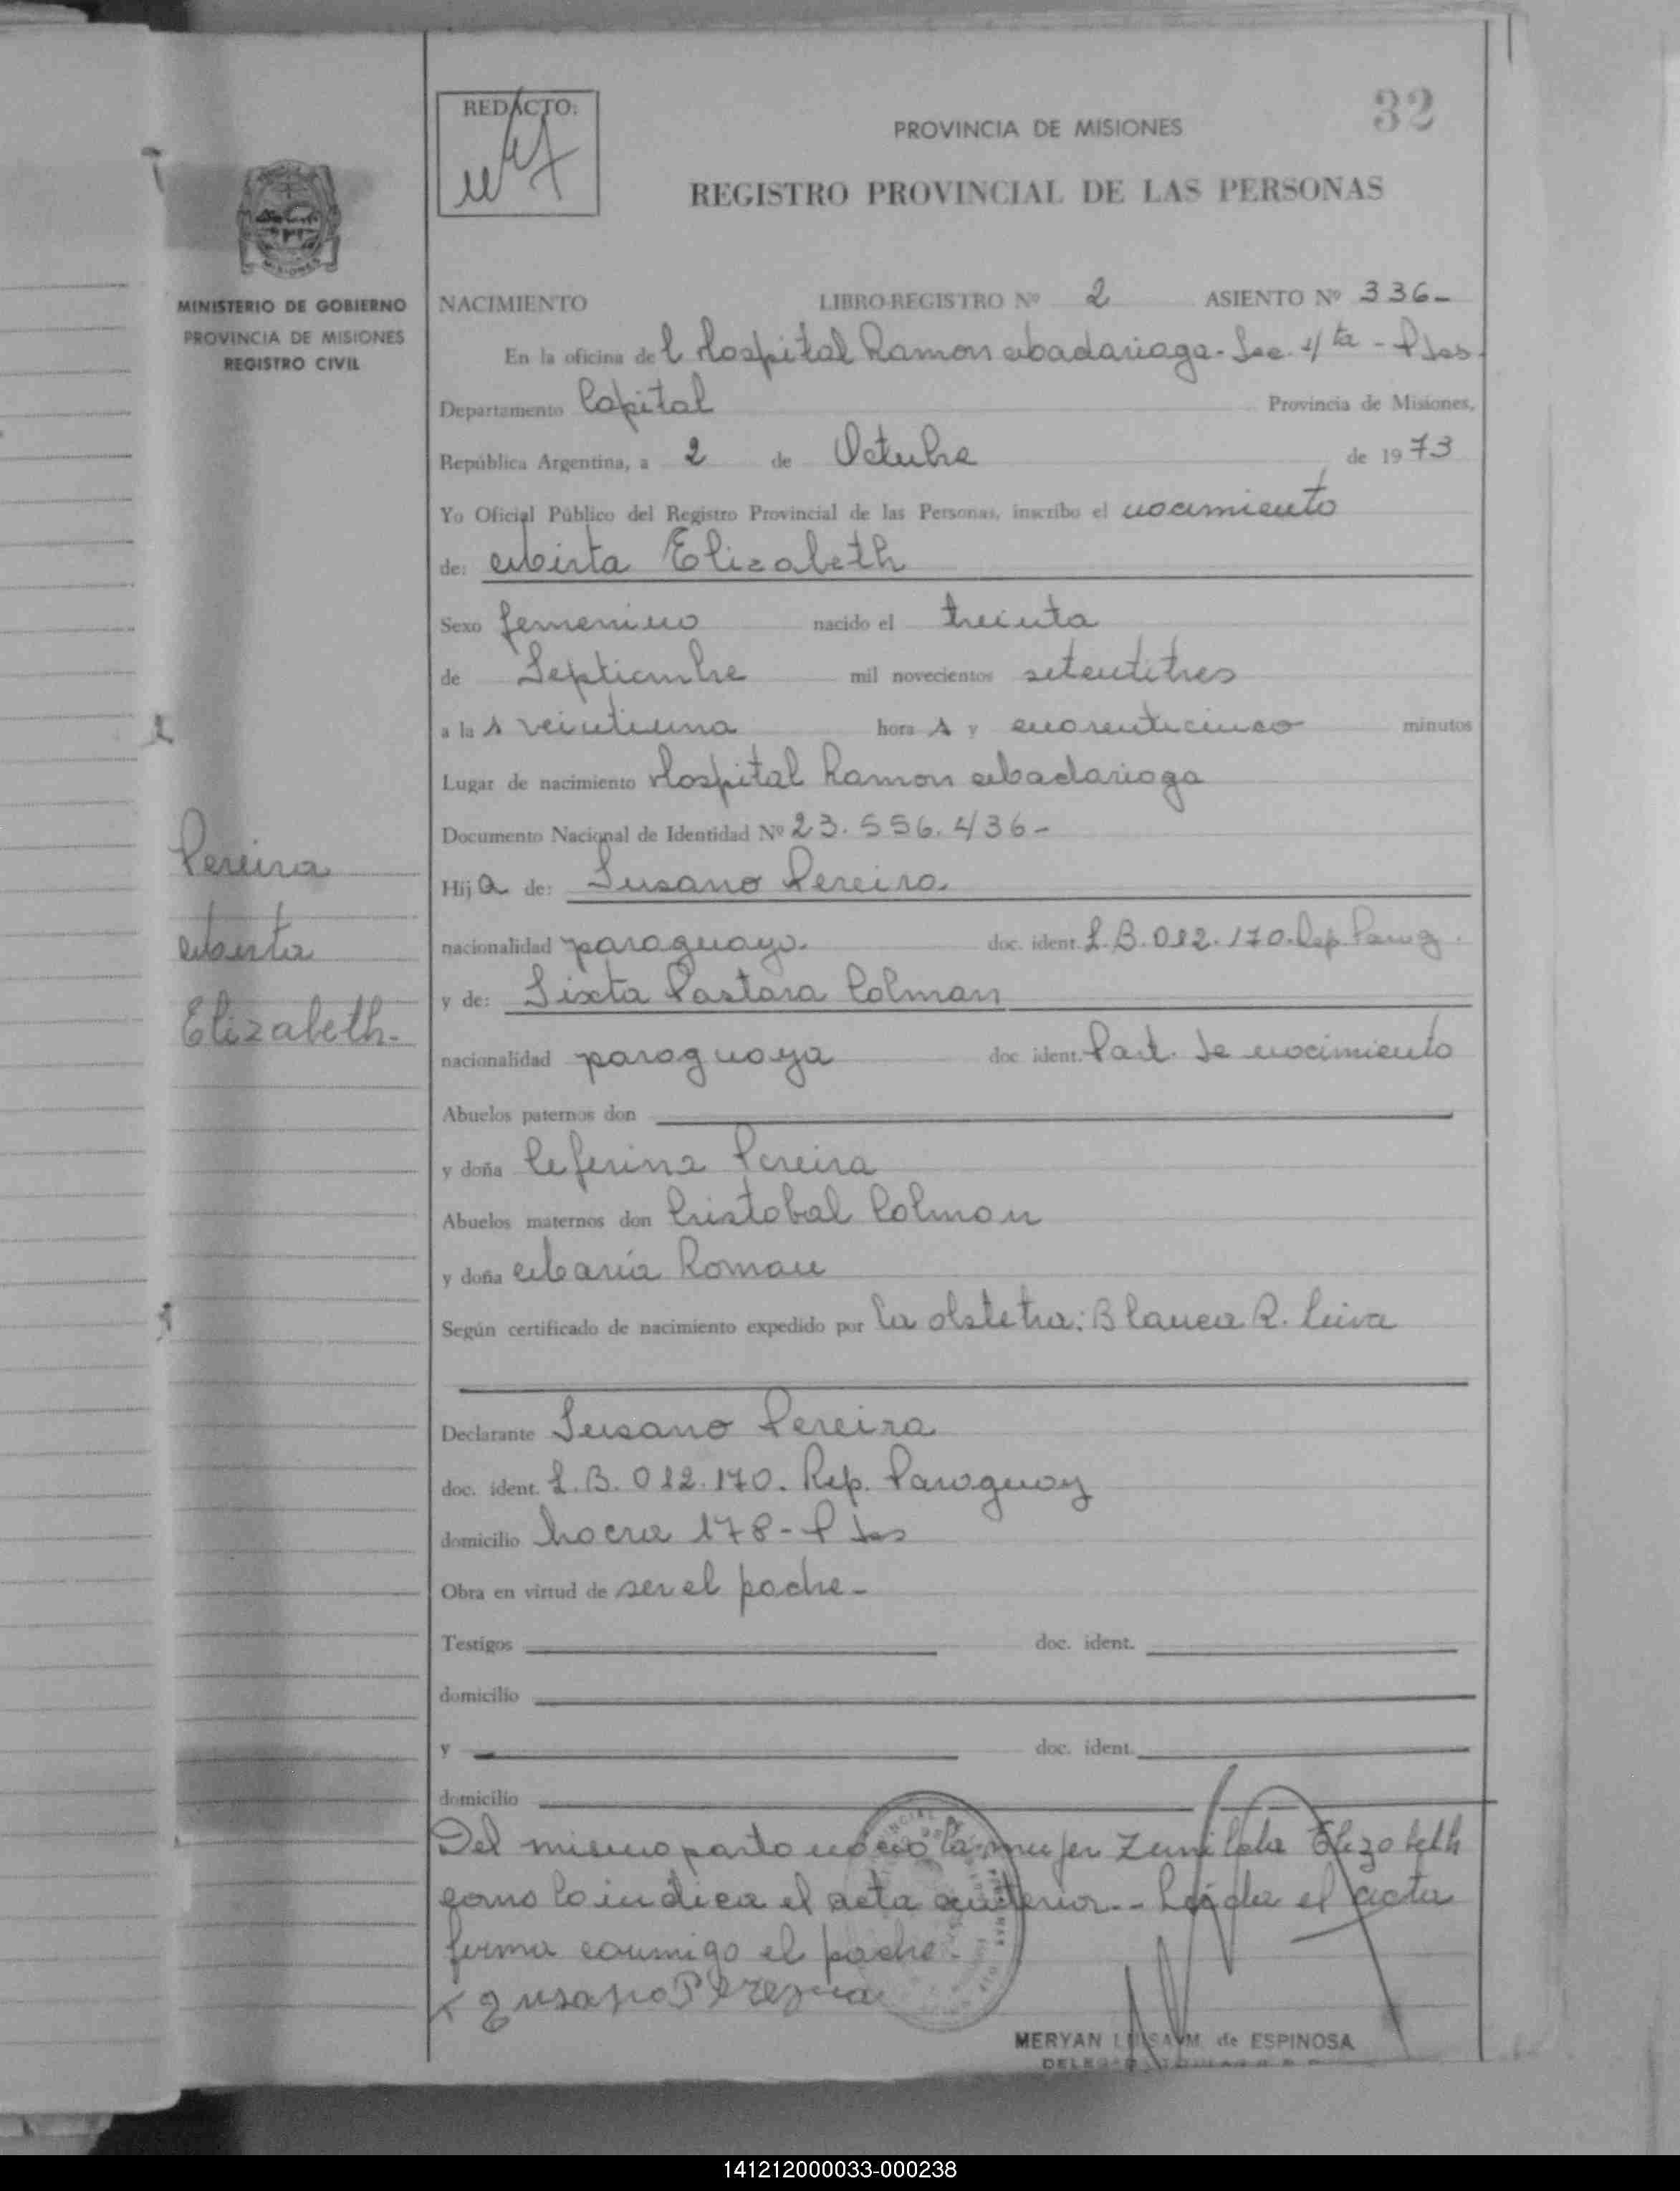 32
REDACTO:
PROVINCIA DE MISIONES
REGISTRO PROVINCIAL DE LAS PERSONAS
MINISTERIO DE GOBIERNO
PROVINCIA DE MISIONES
REGISTRO CIVIL
NACIMIENTO LIBRO-REGISTRO Nº 2 ASIENTO Nº 336-
En la oficina del Hospital Ramon Madariaga - Sec. 4ta - Pdas.
Departamento Capital Provincia de Misiones,
República Argentina, a 2 de Octubre de 1973
Yo Oficial Público del Registro Provincial de las Personas, inscribo el nacimiento
de: Mirta Elizabeth
Sexo femenino nacido el treinta
de Septiembre mil novecientos setentitres
a las veintiuna horas y cuarenticinco minutos
Lugar de nacimiento Hospital Ramon Madariaga
Documento Nacional de Identidad Nº 23.556.436-
Hija de: Susano Pereira
nacionalidad paraguayo doc. ident. L.B. 012.170. Rep. Parag.
y de: Sixta Pastora Colman
nacionalidad paraguaya doc. ident. Part. de nacimiento
Abuelos paternos don
y doña Ceferina Pereira
Abuelos maternos don Cristobal Colman
y doña Maria Roman
Según certificado de nacimiento expedido por la obstetra: Blanca R. Leiva
Declarante Susano Pereira
doc. ident. L.B. 012.170. Rep. Paraguay
domicilio 178 - Pdas
Obra en virtud de ser el padre -
Testigos doc. ident.
domicilio
y doc. ident.
domicilio
Del mismo parto nacio la mujer Zunilda Elizabeth
como lo indica el acta anterior.- Leida el acta
firma conmigo el padre.
Susano Pereira
MERYAN LUISA M. de ESPINOSA
Pereira
Mirta
Elizabeth-
141212000033-000238